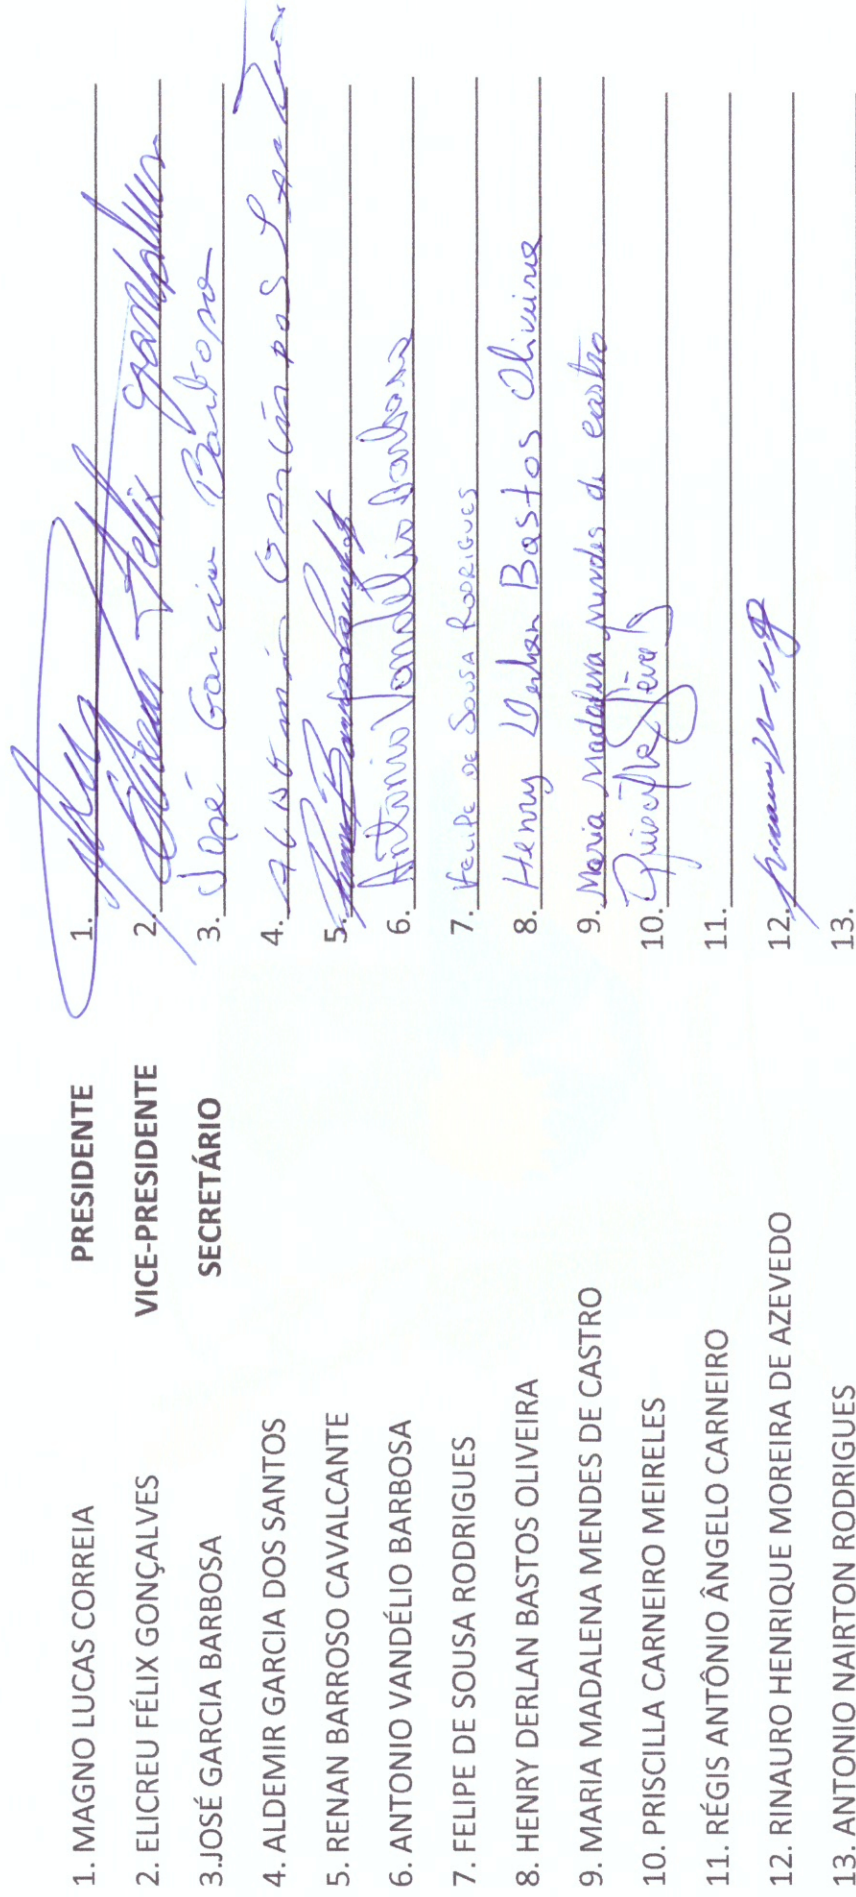 1. MAGNO LUCAS CORREIA PRESIDENTE 1.
2. ELICREU FÉLIX GONÇALVES VICE-PRESIDENTE 2. Felix
3.JOSÉ GARCIA BARBOSA SECRETÁRIO 3. José Garcia Barbosa
4. ALDEMIR GARCIA DOS SANTOS 4.
5. RENAN BARROSO CAVALCANTE 5.
6. ANTONIO VANDÉLIO BARBOSA 6. Antonio Vandélio Barbosa
7. FELIPE DE SOUSA RODRIGUES 7. FELIPE DE SOUSA RODRIGUES
8. HENRY DERLAN BASTOS OLIVEIRA 8. Henry Derlan Bastos Oliveira
9. MARIA MADALENA MENDES DE CASTRO 9. Maria Madalena mendes de castro
10. PRISCILLA CARNEIRO MEIRELES 10.
11. RÉGIS ANTÔNIO ÂNGELO CARNEIRO 11.
12. RINAURO HENRIQUE MOREIRA DE AZEVEDO 12.
13. ANTONIO NAIRTON RODRIGUES 13.